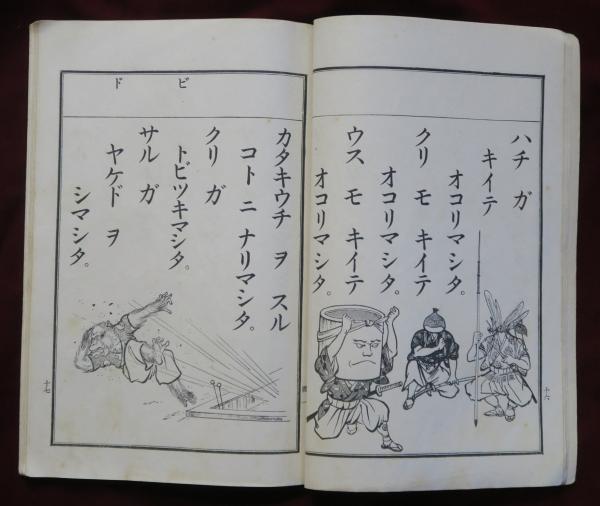 ハチ ガ
キイテ
オコリマシタ。
クリ モ キイテ
オコリマシタ。
ウス モ キイテ
オコリマシタ。
十六
カタキウチ ヲ スル
コト ニ ナリマシタ。
クリ ガ
トビツキマシタ。
サル ガ
ヤケド ヲ
シマシタ。
ビ ド
十七